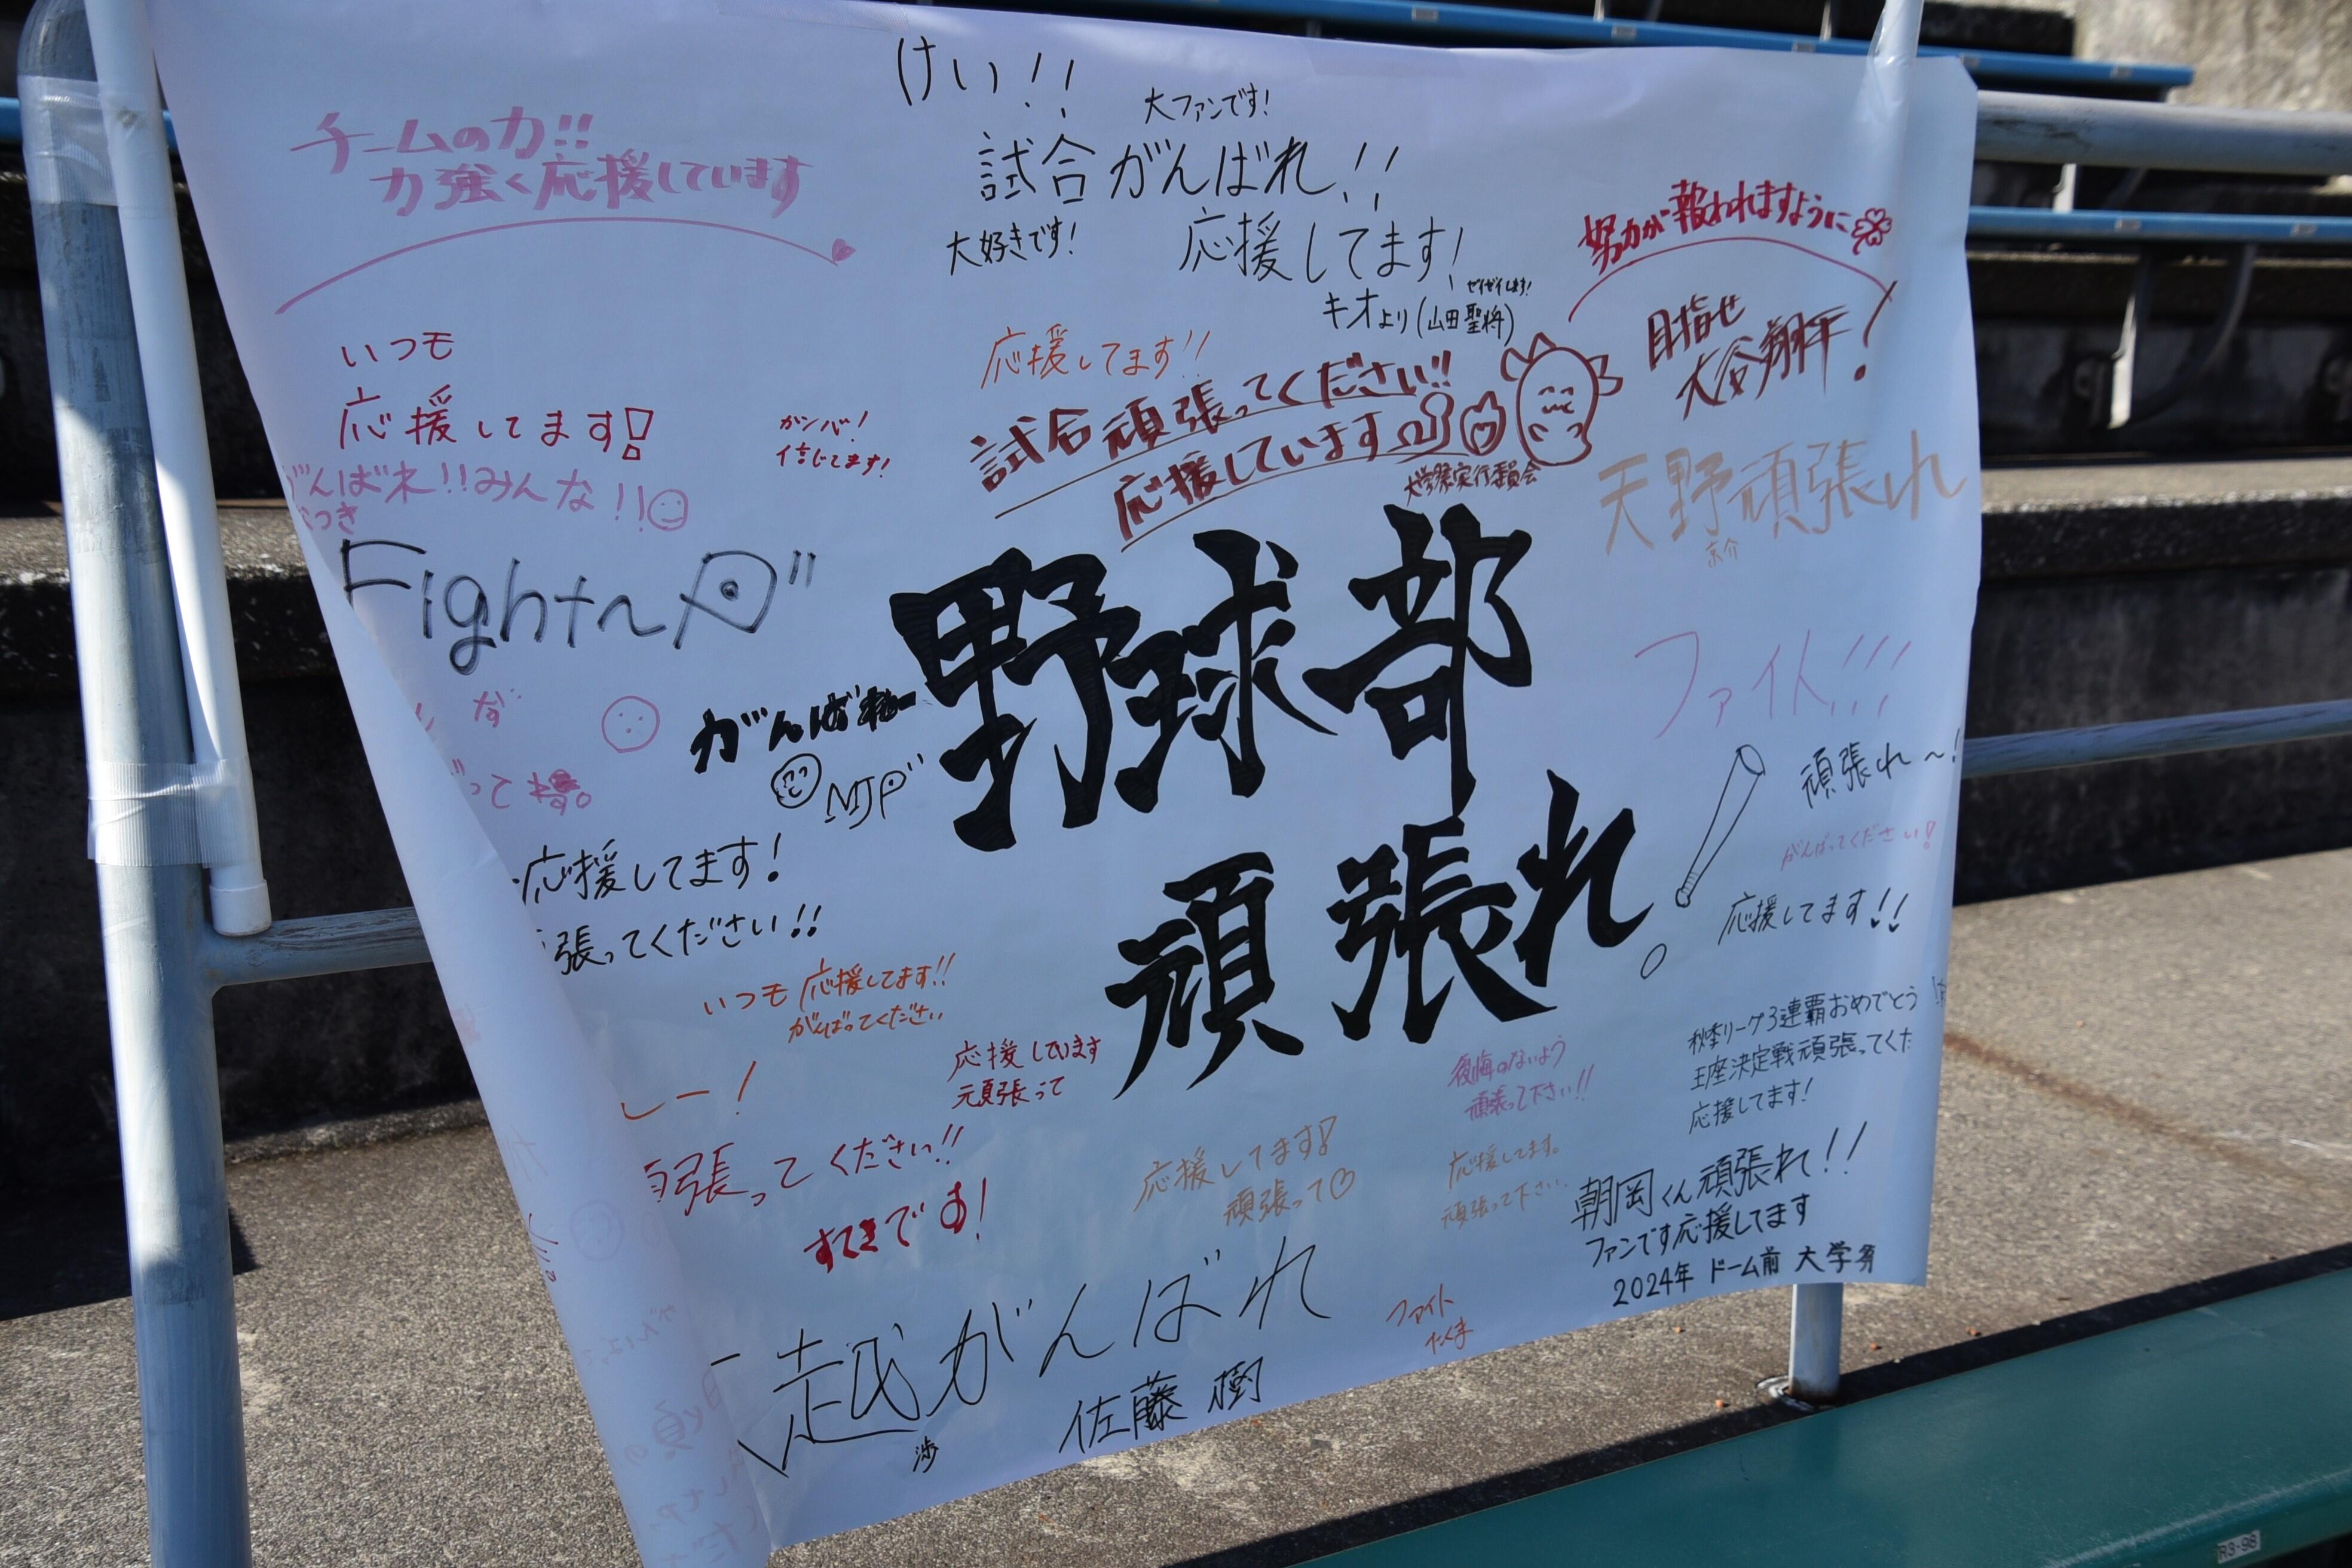 けい!!
大ファンです!
チームの力!!
力強く応援しています
試合がんばれ!!
大好きです!
応援してます!
キオより(山田聖将)
努力が報われますように
目指せ
大谷翔平!
いつも
応援してます!
ガンバ!
信じてます!
応援してます!!
試合頑張ってください!!
応援しています
大学祭実行委員会
がんばれ!!みんな!!
天野頑張れ
京介
Fight~
野球部
頑張れ
がんばれー
ファイト!!!
頑張れ~!
がんばってください!
応援してます!!
応援してます!
張ってください!!
いつも応援してます!!
がんばってください
応援しています
頑張って
秋季リーグ3連覇おめでとう
王座決定戦頑張ってくだ
応援してます!
後悔のないよう
頑張って下さい!!
張ってください!!
すてきです!
応援してます!
頑張って
応援してます。
頑張って下さい。
朝岡くん頑張れ!!
ファンです応援してます
2024年 ドーム前 大学祭
越がんばれ
渉
佐藤 樹
ファイト
たくま
R3-98